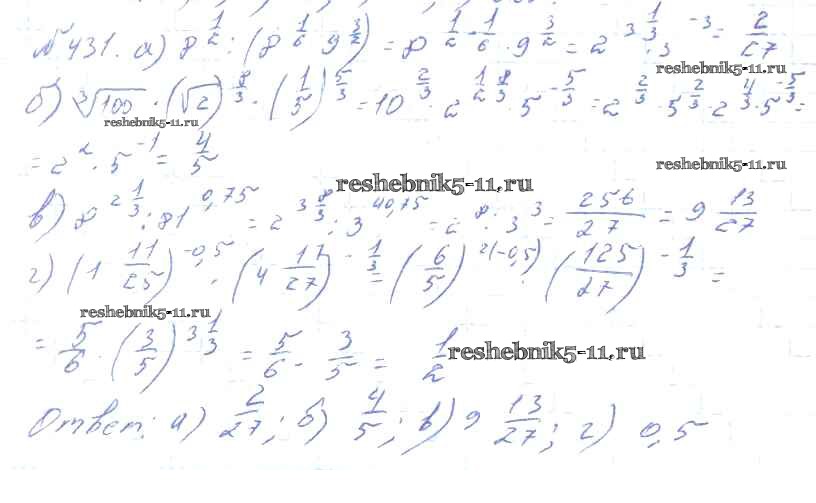 №431. а) 8^{1/2} : (8^{1/6} · 9^{3/2}) = 8^{1/2 - 1/6} · 9^{3/2} = 2^{3 1/3} · 3^{-3} = 2/27
reshebnik5-11.ru
б) ∛100 · (√2)^{8/3} · (1/5)^{5/3} = 10^{2/3} · 2^{1/2 8/3} · 5^{-5/3} = 2^{2/3} · 5^{2/3} · 2^{4/3} · 5^{-5/3} =
reshebnik5-11.ru
= 2^2 · 5^{-1} = 4/5
reshebnik5-11.ru
reshebnik5-11.ru
в) 8^{2 1/3} : 81^{0,75} = 2^{3 8/3} : 3^{4 0,75} = 2^8 : 3^3 = 256/27 = 9 13/27
г) (1 11/25)^{-0,5} · (4 17/27)^{-1/3} = (6/5)^{2(-0,5)} · (125/27)^{-1/3} =
reshebnik5-11.ru
= 5/6 · (3/5)^{3 1/3} = 5/6 · 3/5 = 1/2
reshebnik5-11.ru
Ответ: а) 2/27; б) 4/5; в) 9 13/27; г) 0,5